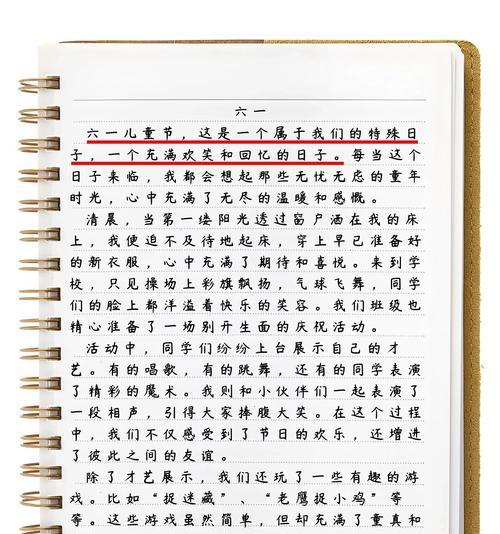 六一
六一儿童节，这是一个属于我们的特殊日
子，一个充满欢笑和回忆的日子。每当这个
日子来临，我都会想起那些无忧无虑的童年
时光，心中充满了无尽的温暖和感慨。
清晨，当第一缕阳光透过窗户洒在我的床
上，我便迫不及待地起床，穿上早已准备好
的新衣服，心中充满了期待和喜悦。来到学
校，只见操场上彩旗飘扬，气球飞舞，同学
们的脸上都洋溢着快乐的笑容。我们班级也
精心准备了一场别开生面的庆祝活动。
活动中，同学们纷纷上台展示自己的才
艺。有的唱歌，有的跳舞，还有的同学表演
了精彩的魔术。我则和小伙伴们一起表演了
一段相声，引得大家捧腹大笑。在这个过程
中，我们不仅感受到了节日的欢乐，还增进
了彼此之间的友谊。
除了才艺展示，我们还玩了一些有趣的游
戏。比如“捉迷藏”、“老鹰捉小鸡”等
等。这些游戏虽然简单，但却充满了童真和